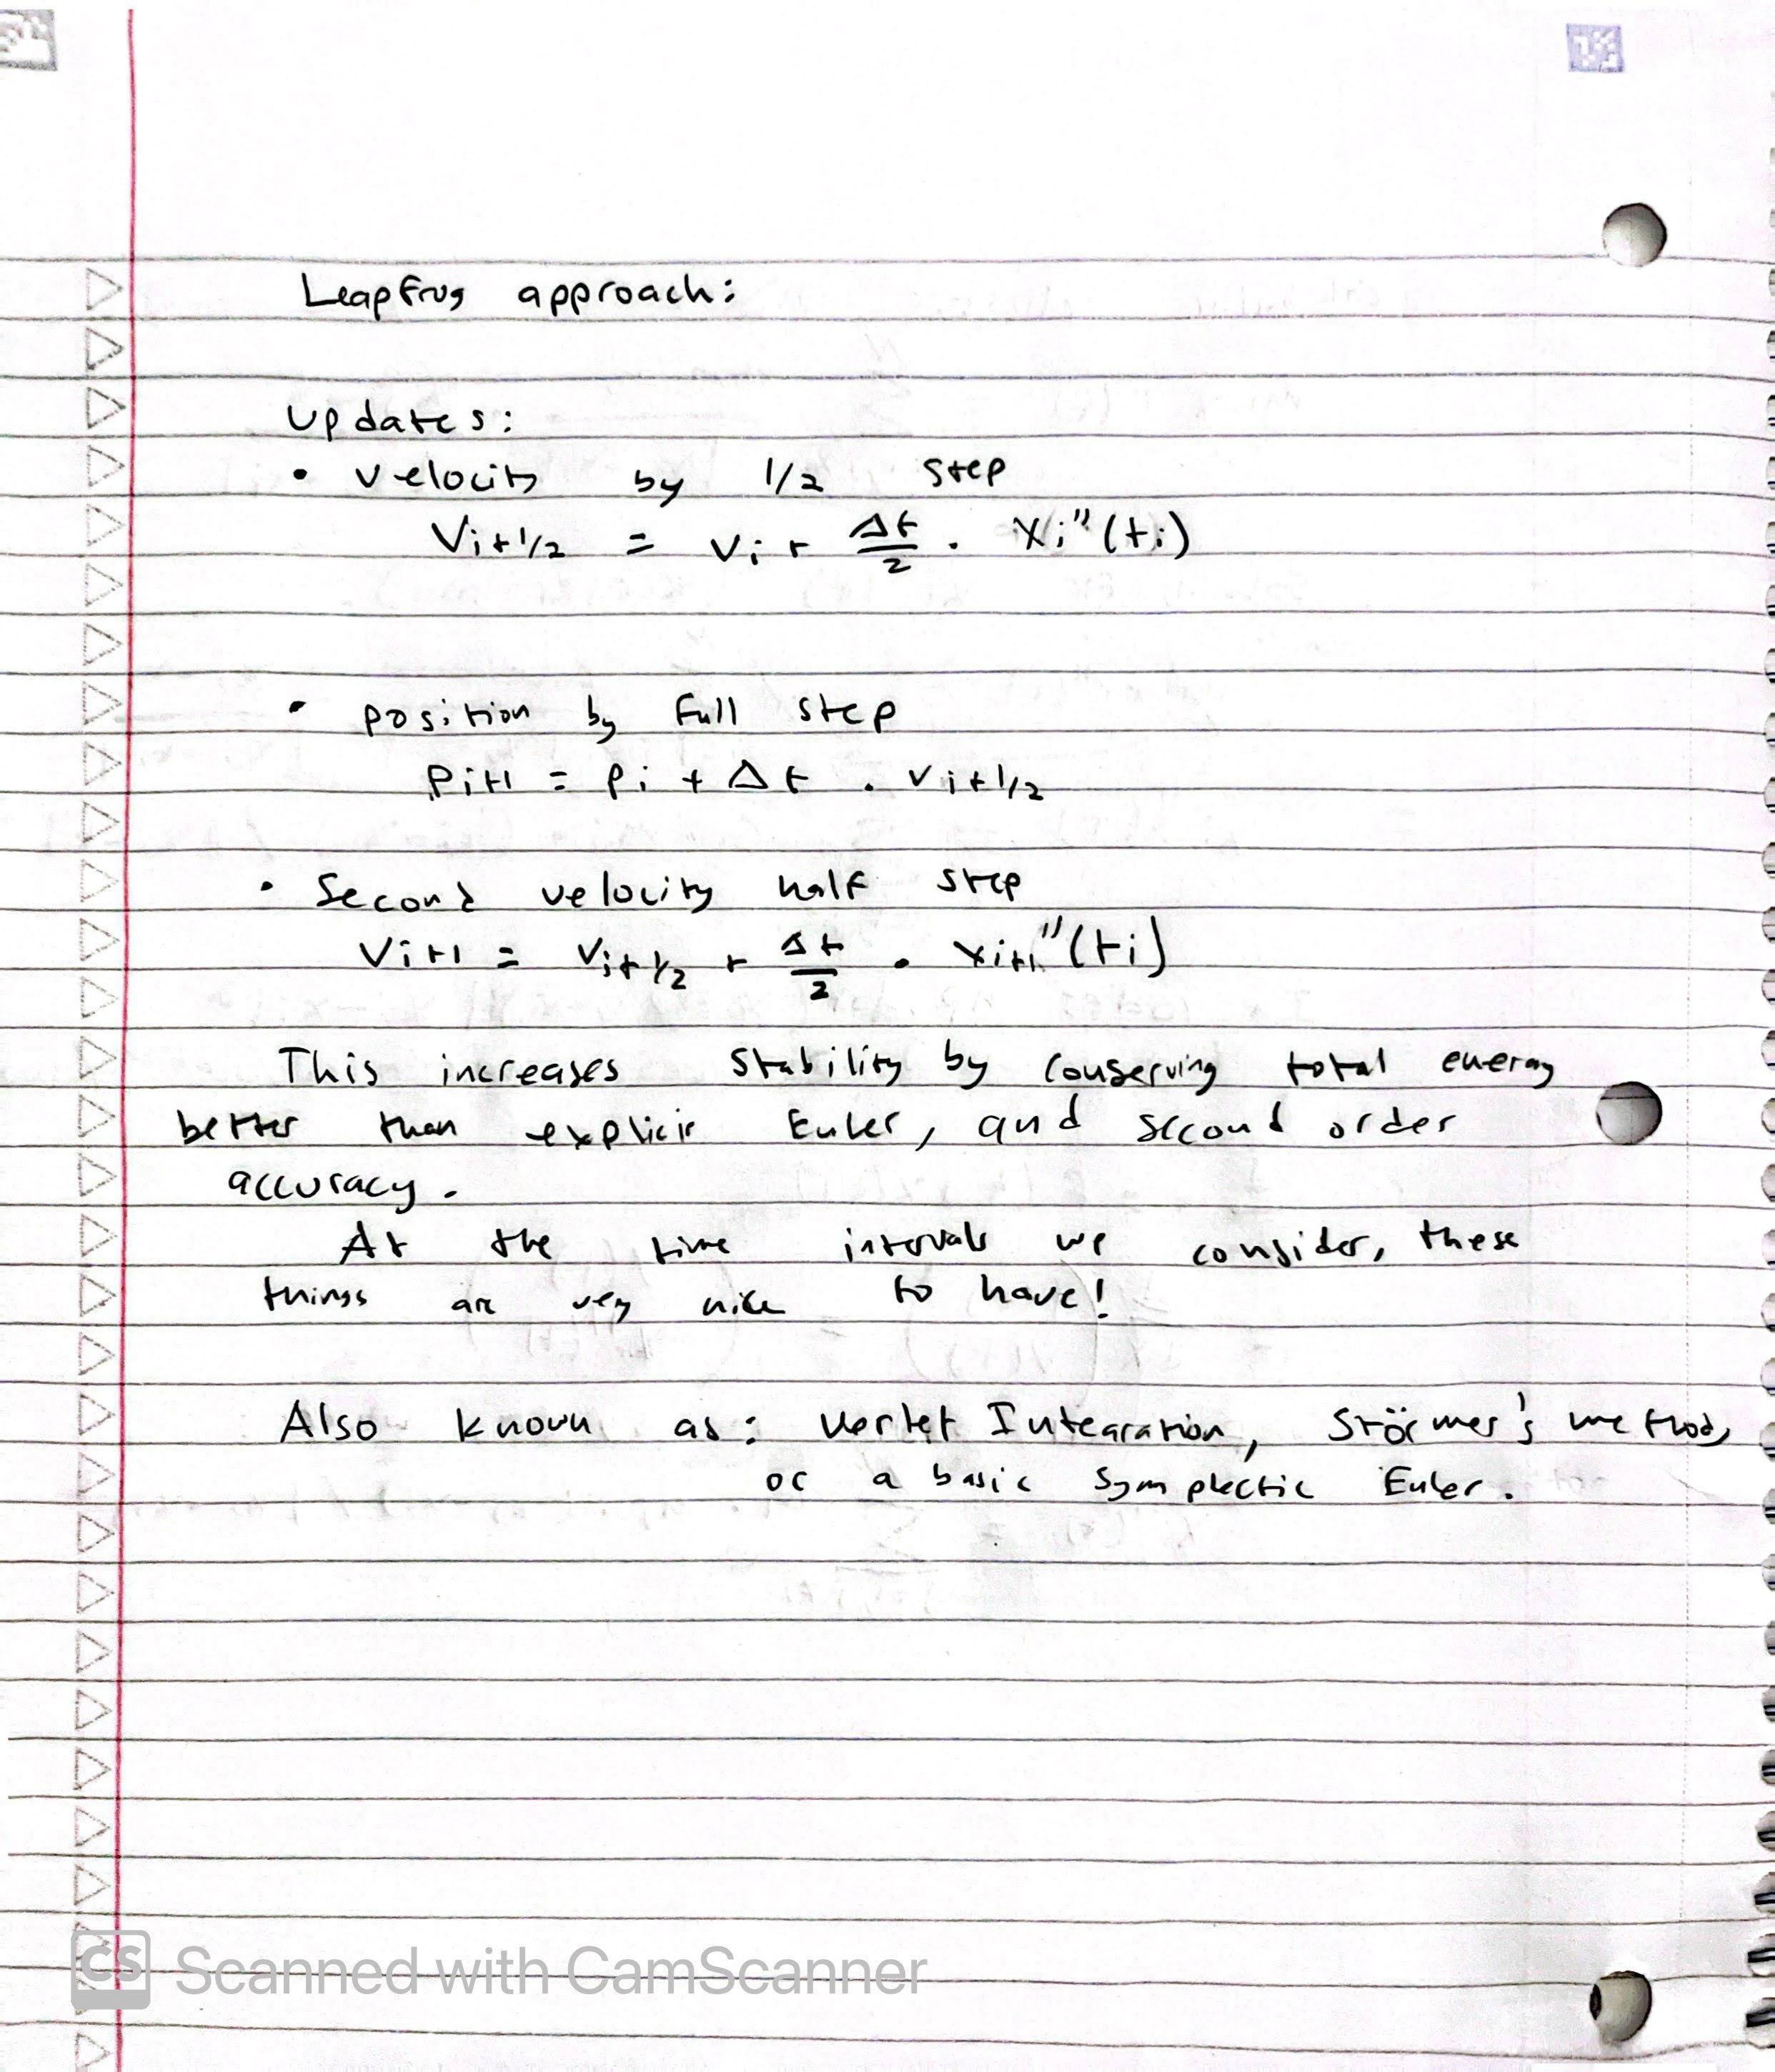 Leapfrog approach:
Updates:
• velocity by 1/2 step
Vi+1/2 = Vi + Δt/2 · Xi''(ti)
• position by full step
Pi+1 = Pi + Δt · Vi+1/2
• Second velocity half step
Vi+1 = Vi+1/2 + Δt/2 · Xi+1''(ti)
This increases stability by conserving total energy
better than explicit Euler, and second order
accuracy.
At the time intervals we consider, these
things are very nice to have!
Also known as: Verlet Integration, Störmer's method,
or a basic Symplectic Euler.
CS Scanned with CamScanner